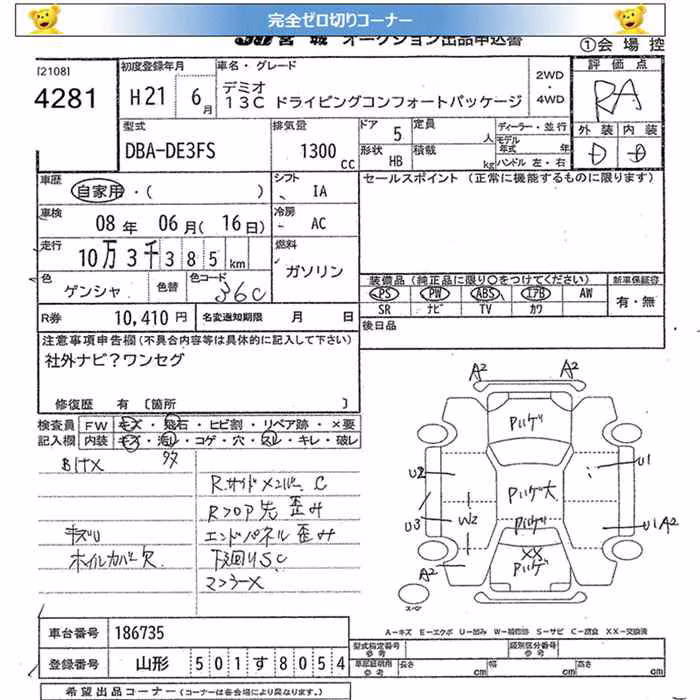 完全ゼロ切りコーナー
JU 宮城 オークション出品申込書
①会場控
[2108]
4281
初度登録年月
H21 6月
車名・グレード
デミオ
13C ドライビングコンフォートパッケージ
2WD
・
4WD
評価点
RA
外装 内装
D D
型式
DBA-DE3FS
排気量
1300 cc
ドア 5
形状 HB
定員 人
積載 kg
ディーラー・並行
モデル年式 年
ハンドル 左・右
車歴
自家用・( )
シフト
IA
セールスポイント (正常に機能するものに限ります)
車検
08年 06月(16日)
冷房
AC
走行
10万3千385km
燃料
ガソリン
色
ゲンシャ
色替
色コード
36C
装備品(純正品に限り○をつけてください)
PS PW ABS エアB AW
SR ナビ TV カワ
新車保証書
有・無
R券 10,410円
名変通知期限 月 日
後日品
注意事項申告欄(不具合内容等は具体的に記入して下さい)
社外ナビ?ワンセグ
修復歴 有 [箇所 ]
検査員記入欄
FW キズ・飛石・ヒビ割・リペア跡・×要
内装 キズ・汚レ・コゲ・穴・スレ・キレ・破レ
RサイドメンバーC
Rフロア先歪み
エンドパネル歪み
キズU
ホイルカバー欠
下廻りSC
マフラーX
A2 A2
Pハゲ
U2 U1
Pハゲ大
U3 W2 Pハゲ U1A2
XX
A2 Pハゲ
スペア
A-キズ E-エクボ U-凹み W-補修跡 S-サビ C-腐食 XX-交換済
車台番号 186735
登録番号 山形 501す8054
型式指定番号 参考
類別区分番号 参考
車庫証明用 参考 長さ cm 幅 cm 高さ cm
希望出品コーナー(コーナーは各会場により異なります。)